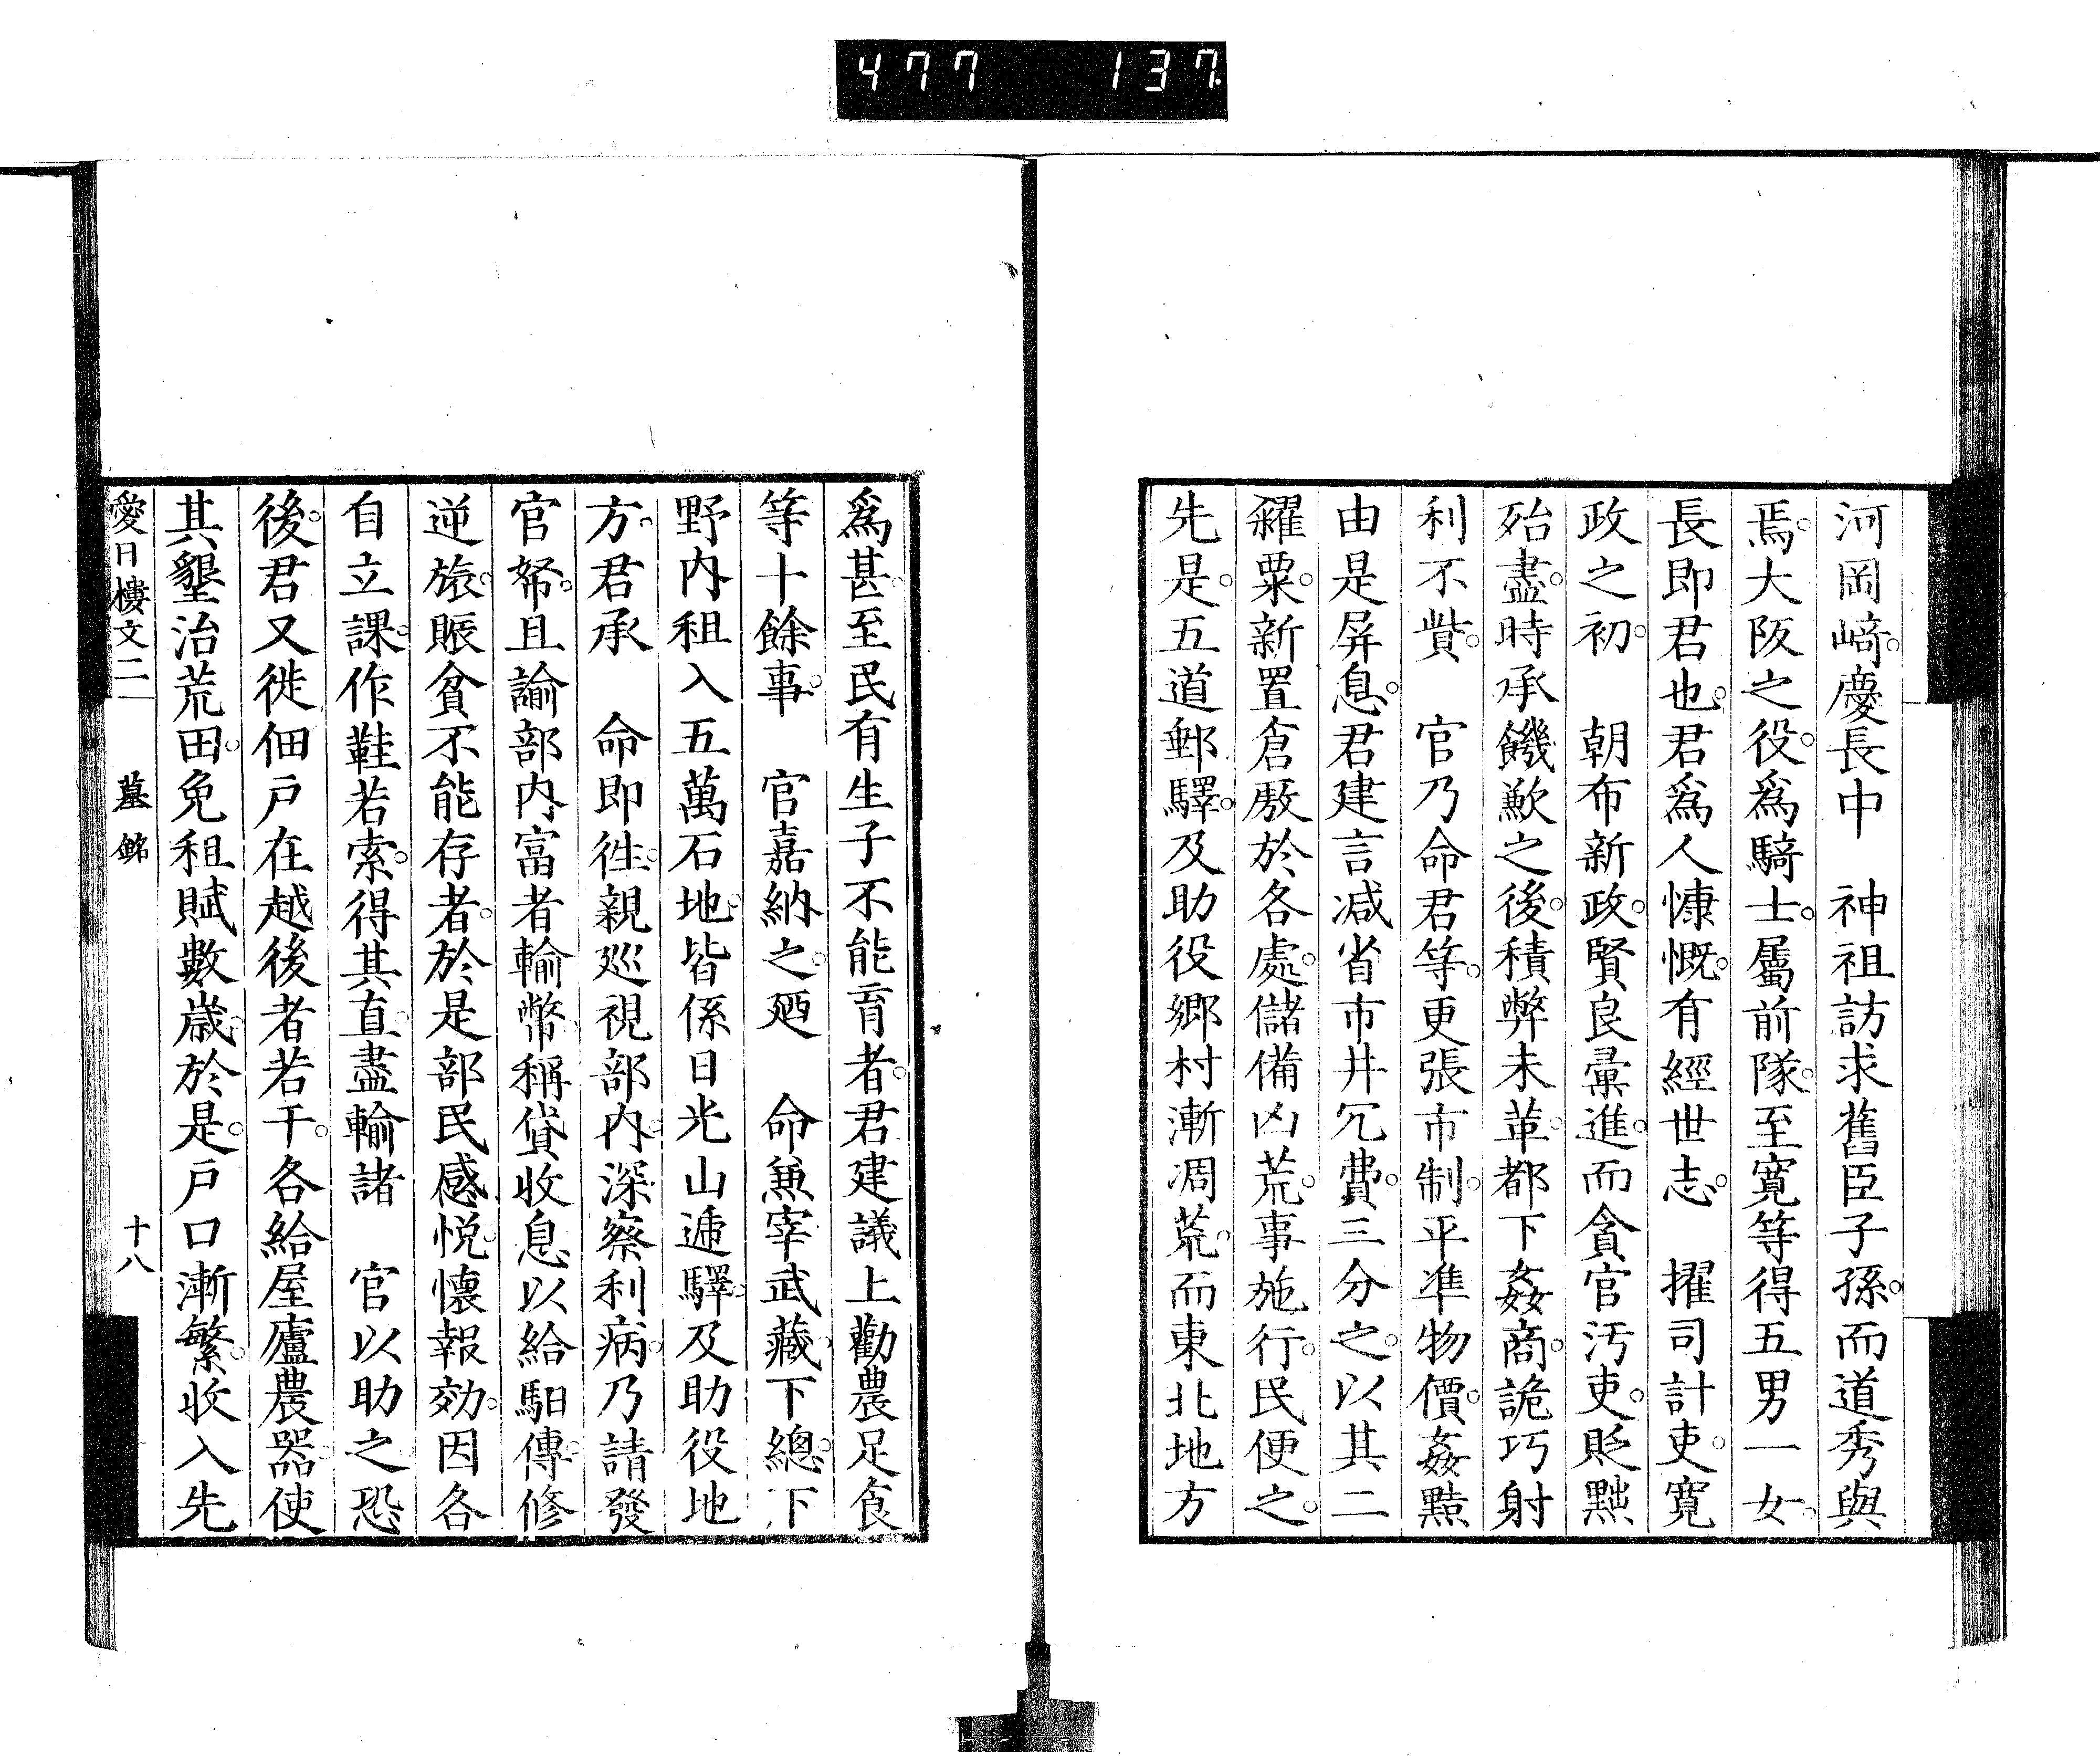 477 137
河岡﨑。慶長中　神祖訪求舊臣子孫。而道秀與
焉。大阪之役。爲騎士。屬前隊。至寬等得五男一女。
長即君也。君爲人慷慨。有經世志。　擢司計吏。寬
政之初。　朝布新政。賢良彙進。而貪官汚吏。貶黜
殆盡。時承饑歉之後。積弊未革。都下姦商。詭巧射
利不貲。　官乃命君等。更張市制。平準物價。姦黠
由是屏息。君建言减省市井冗費。三分之。以其二
糴粟。新置倉廒於各處。儲備凶荒。事施行。民便之。
先是。五道郵驛。及助役郷村漸凋荒。而東北地方
爲甚。至民有生子不能育者。君建議上勸農足食
等十餘事。　官嘉納之。廼　命兼宰武藏下總。下
野内租入五萬石地。皆係日光山遞驛。及助役地
方。君承　命即徃。親巡視部内。深察利病。乃請發
官帑。且諭部内富者輸幣。稱貸收息以給馹傳。修
逆旅。賑貧不能存者。於是部民感悦。懷報効。因各
自立課。作鞋若索。得其直。盡輸諸　官以助之。恐
後。君又徙佃戸在越後者若干。各給屋廬農器。使
其墾治荒田。免租賦數歳。於是。戸口漸繁。收入先
愛日樓文二　墓銘　十八